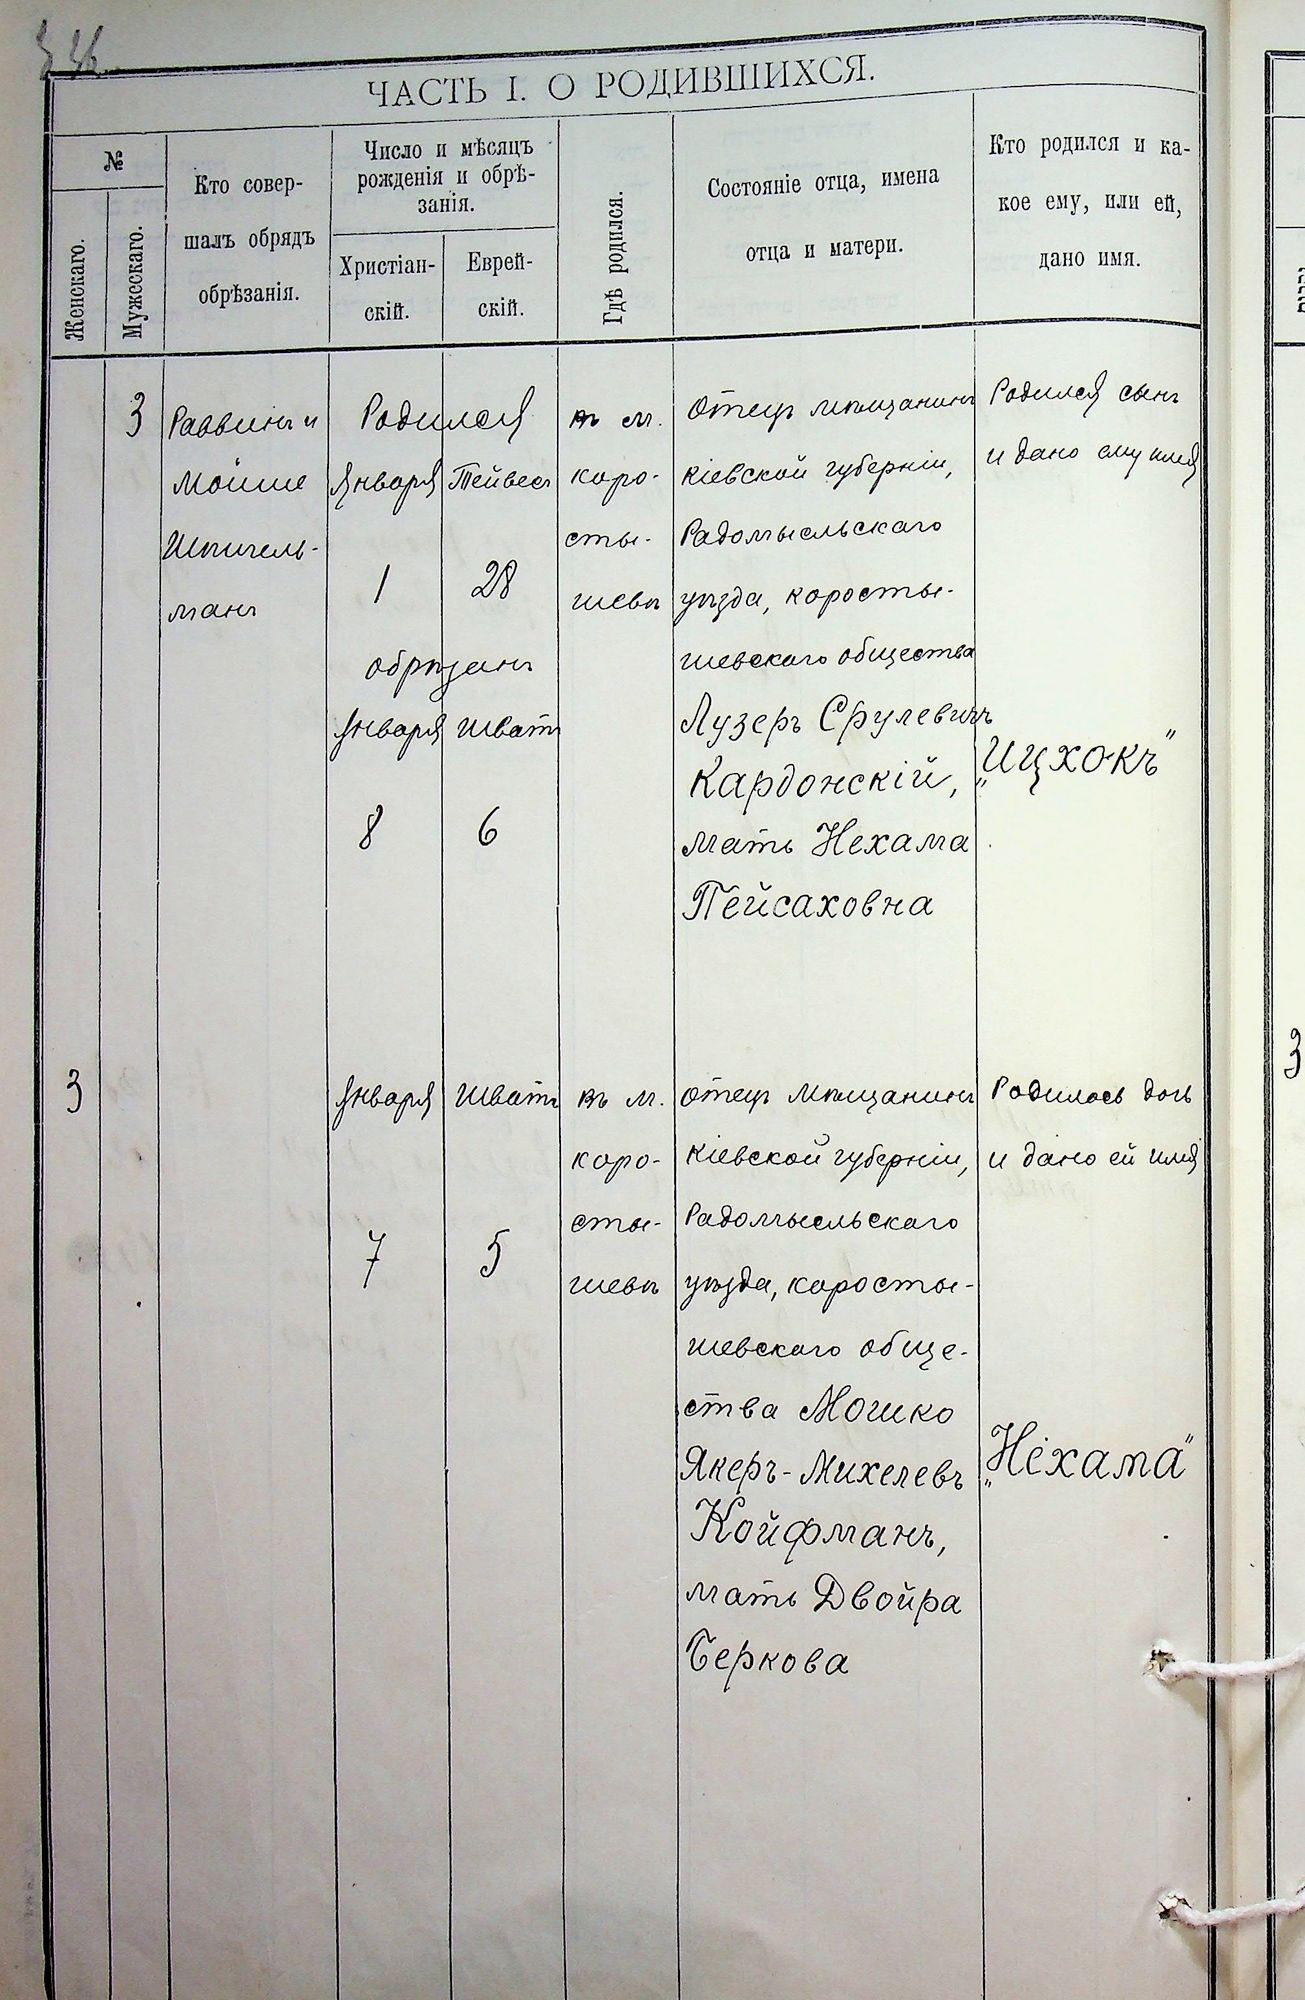 ЧАСТЬ I. О РОДИВШИХСЯ.
№
Женскаго.
Мужескаго.
Кто совер-
шалъ обрядъ
обрѣзанія.
Число и мѣсяцъ
рожденія и обрѣ-
занія.
Христіан-
скій.
Еврей-
скій.
Гдѣ родился.
Состояніе отца, имена
отца и матери.
Кто родился и ка-
кое ему, или ей,
дано имя.
3
Раввинъ и
Мойше
Шпигель-
манъ
Родился
Января Тейвесъ
1 28
обрѣзанъ
Января Шватъ
8 6
въ м.
коро-
сты-
шевѣ
Отецъ мѣщанинъ
кіевской губерніи,
Радомысльскаго
уѣзда, коросты-
шевскаго общества
Лузеръ Срулевичъ
Кардонскій,
мать Нехама
Пейсаховна
Родился сынъ
и дано ему имя
„Ицхокъ"
3
Января Шватъ
7 5
въ м.
коро-
сты-
шевѣ
отецъ мѣщанинъ
кіевской губерніи,
Радомысльскаго
уѣзда, коросты-
шевскаго обще-
ства Мошко
Якеръ-Михелевъ
Койфманъ,
мать Двойра
Беркова
Родилась дочь
и дано ей имя
„Нехама"
3